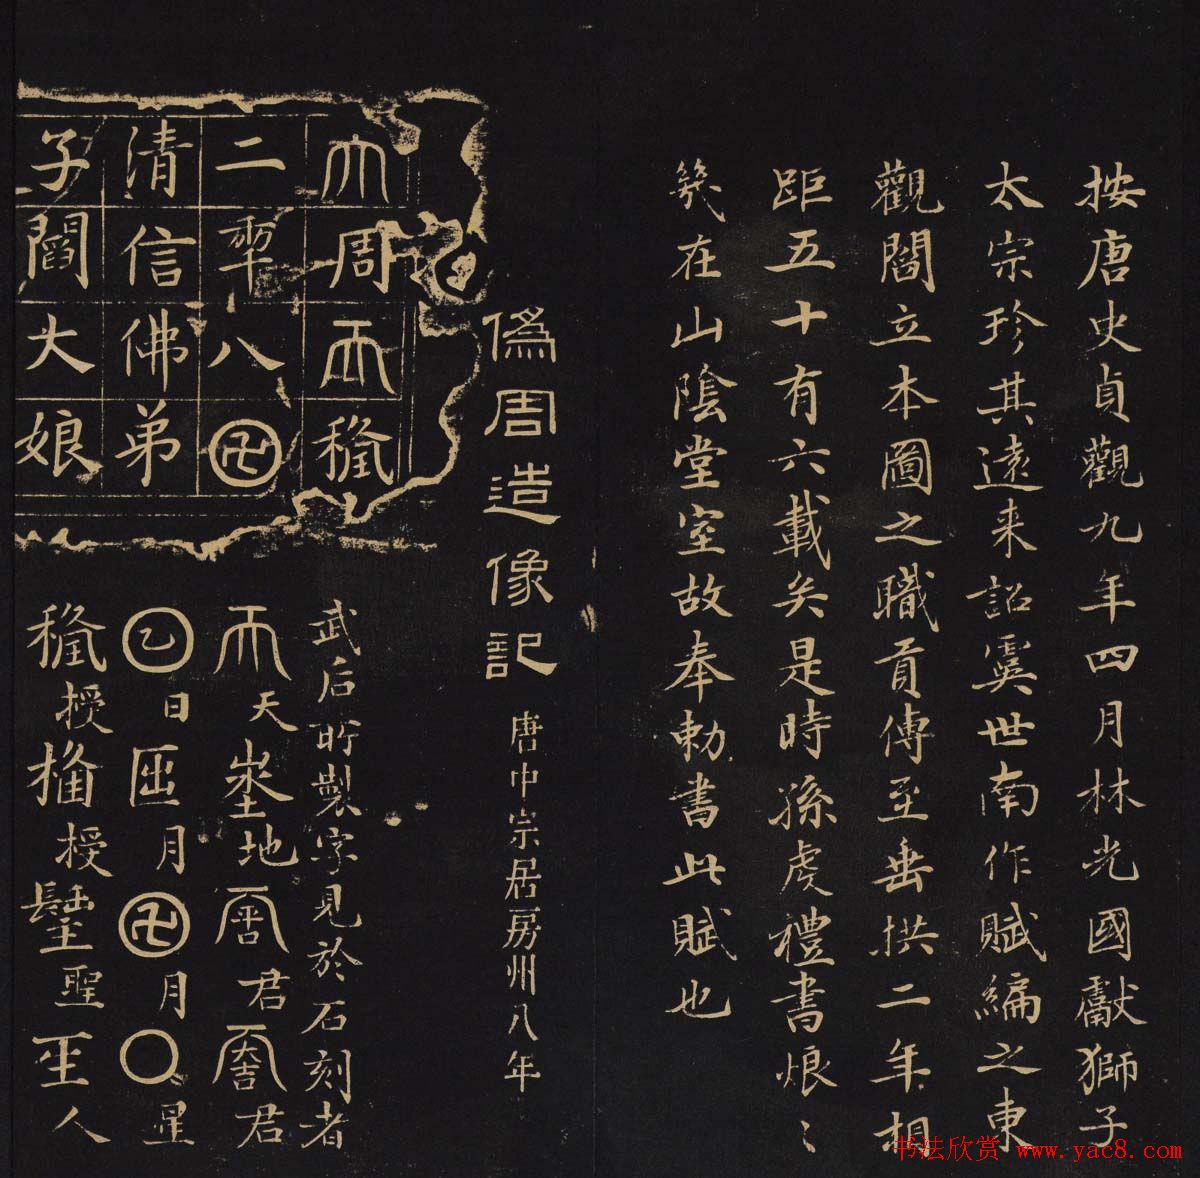 按唐史貞觀九年四月林光國獻獅子
太宗珍其遠来詔虞世南作賦編之東
觀閻立本圖之職貢傳至垂拱二年相
距五十有六載矣是時孫虔禮書烺〻
在山陰堂室故奉勅書此賦也
偽周造像記 唐中宗居房州八年
大周𠀑𥠢
二𠡦八卍
清信佛弟
子閻大娘
武后所製字見於石刻者
𠀑天埊地𠁈君君
𡆠日𠥱月卍月〇星
𥠢授授𨲢聖𤯔人
书法欣赏 www.yac8.com